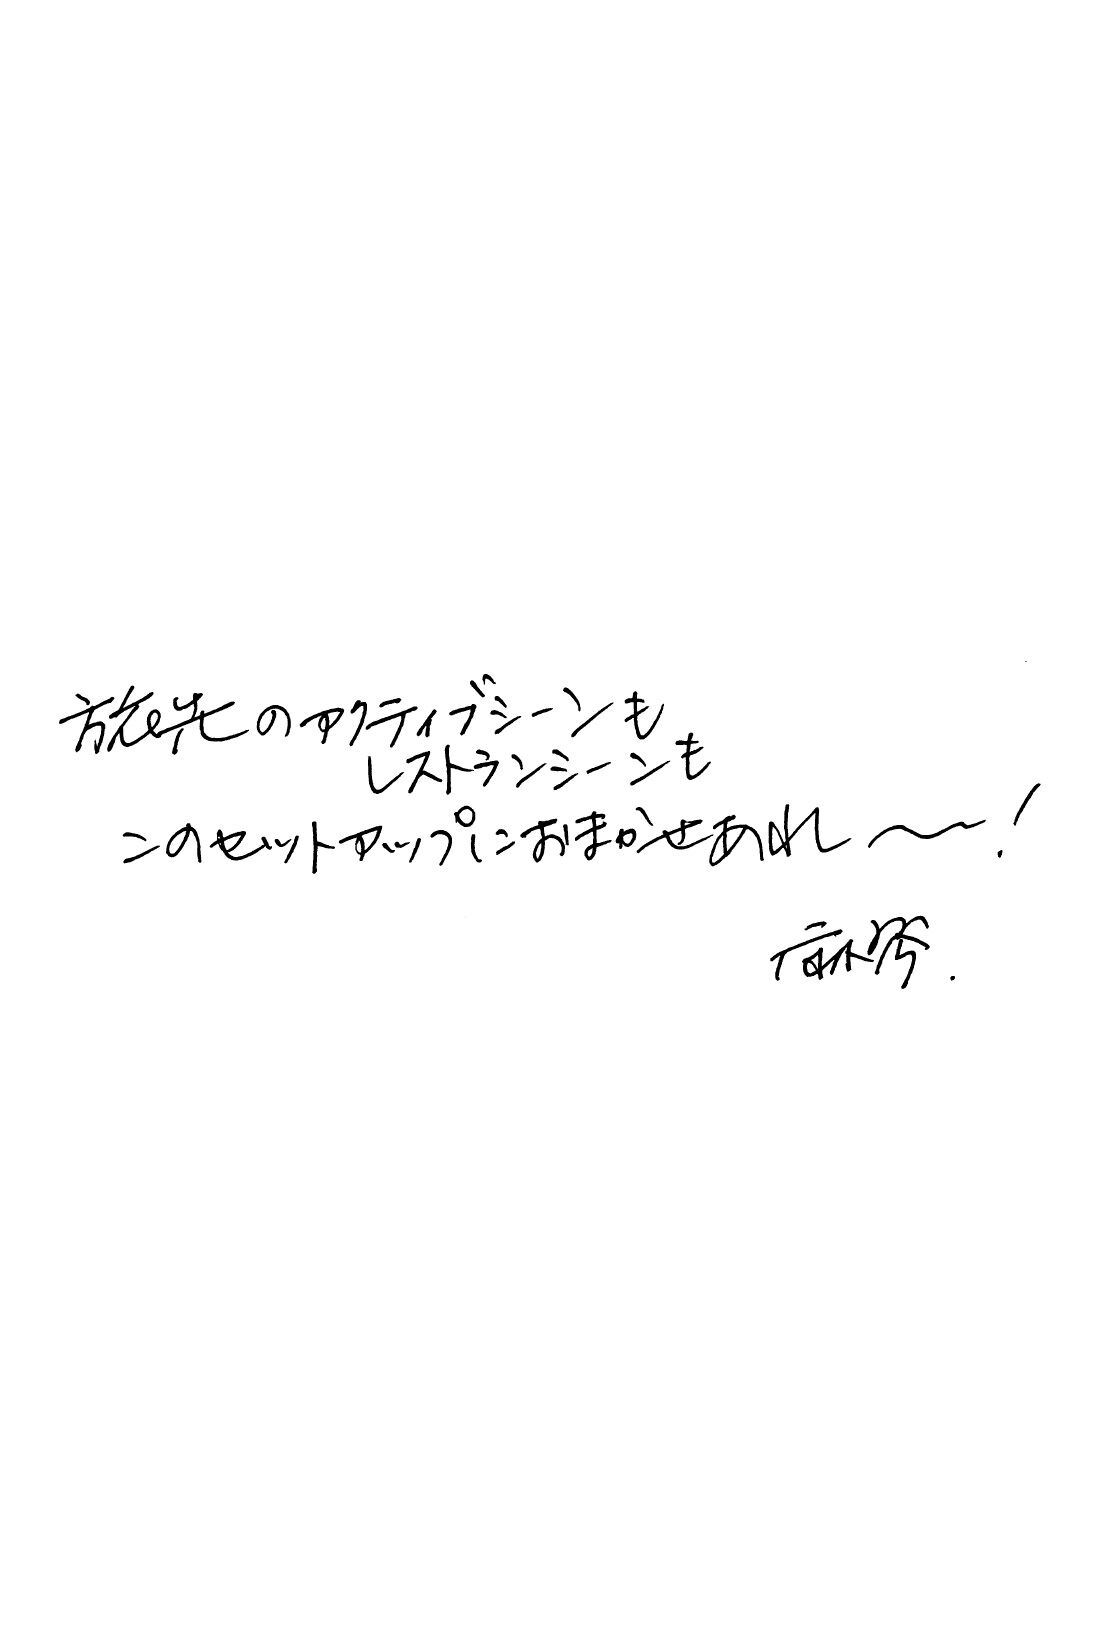 旅先のアクティブシーンも
レストランシーンも
このセットアップにおまかせあれ〜！